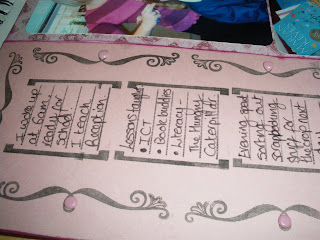 I woke up
at 6am
ready for
school!
I teach
Reception.
Lessons taught
• ICT
• Book buddies
• Literacy -
The Hungry
Caterpillar
Evening spent
sorting out
scrapbooking
stuff for
the crop next